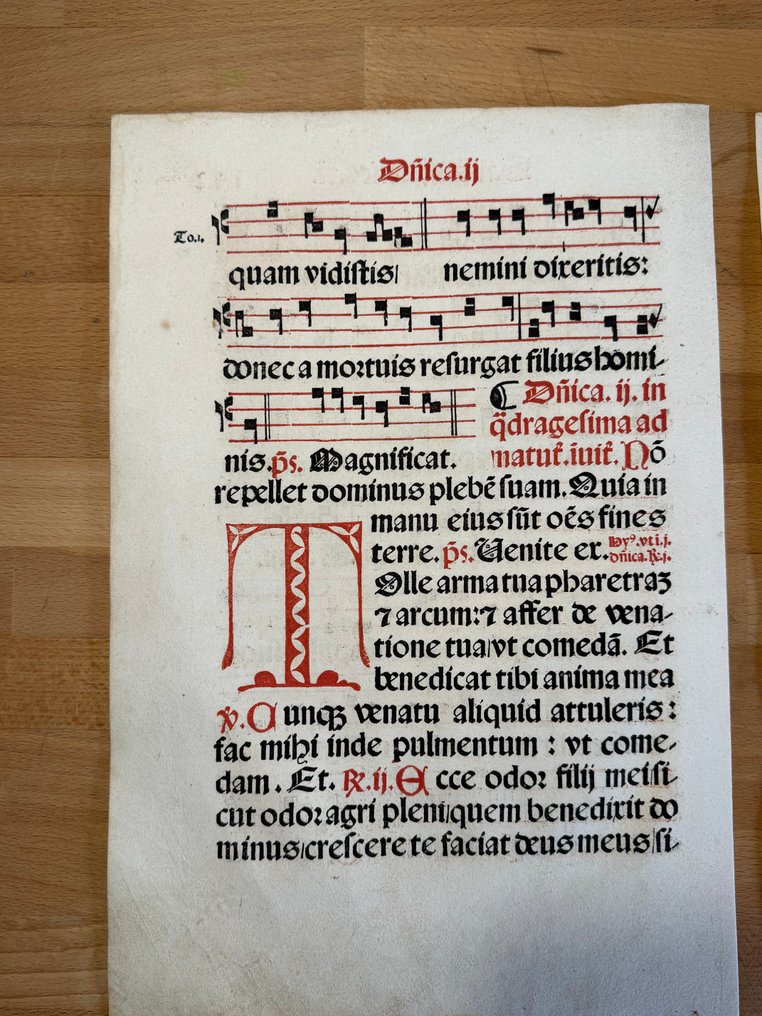 Dn̄ica.ij
To.i.
quam vidistis/ nemini dixeritis:
donec a mortuis resurgat filius homi-
nis. p̄s. Magnificat.
¶ Dn̄ica. ij. in
q̄dragesima ad
matut̄. īuit̄. Nō
repellet dominus plebē suam. Quia in
manu eius sūt oēs fines
terre. p̄s. Uenite ex. Hyꝰ. vt i. j.
dn̄ica. R̄. j.
TOlle arma tua pharetraꝫ
⁊ arcum: ⁊ affer de vena-
tione tua/ vt comedā. Et
benedicat tibi anima mea
℣. Cunqꝫ venatu aliquid attuleris:
fac mihi inde pulmentum : vt come-
dam . Et. ℟. ij. Ecce odor filij mei si-
cut odor agri pleni/ quem benedixit do
minus/ crescere te faciat deus meus/ si-